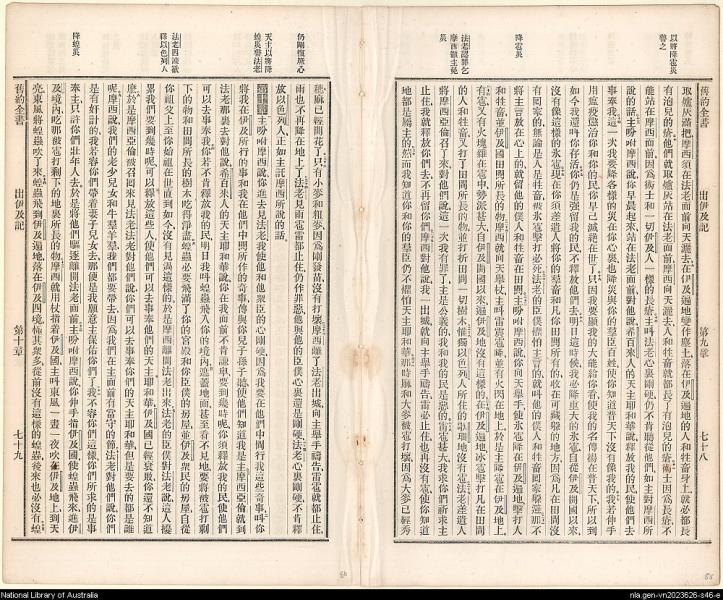 以將降雹災
警之
降雹災
法老認罪乞
摩西禱主免
災
舊約全書 出伊及記 第九章 七十八
取爐灰滿把摩西須在法老面前向天灑去在伊及遍地變作塵土落在伊及遍地的人和牲畜身上就必都長
有泡兒的瘡他們就取爐灰站在法老面前摩西向天灑去人和牲畜都長了有泡兒的瘡術士因爲長瘡不
能站在摩西面前因爲術士和一切伊及人一樣的長瘡主叫法老心裏剛硬仍不肯聽從他們如主對摩西所
說的話主吩咐摩西說你早晨起來站在法老面前對他說希百來人的天主耶和華說釋放我的民使他們去
事奉我這一次我要降各樣的災在你心裏也降災與你的羣臣百姓使你知道普天下沒有像我的我若伸手
用瘟疫懲治你和你的民你早已滅絕在世了只因我要顯我的大能給你看使我的名傳揚在普天下所以到
如今我還叫你存活你仍是強留我的民不釋放他們去明日這時候我必降重大的冰雹自從伊及開國以來
沒有像這樣的冰雹現在你須差遣人將你的牲畜和凡你田間所有的收在可藏躱的地方因爲凡在田間沒
有回家的無論是人是牲畜被氷雹擊打必死法老的臣僕懼怕主言的就叫他的僕人和牲畜回家躱避那不
將主言放在心上的就留他的僕人和牲畜在田間主吩咐摩西說你向天舉手使氷雹降在伊及遍地擊打人
和牲畜並伊及國田間所長的物摩西就向天舉杖主叫雷震雹降並有火閃在地上於是主降雹在伊及地上
有雹又有火塊雜在雹中勢派甚大自伊及開國以來遍伊及地沒有這樣的在伊及遍地冰雹擊打凡在田間
的人和牲畜又打了田間所長的物並打折田間一切樹木惟獨以色列人所住的歌珊地沒有雹法老差遣人
將摩西亞倫召了來對他們說這一次我有罪了主是公義的我和我的民都是惡的雷雹甚大我求你們祈求主
止住我就釋放你們去不再留你們摩西對他說我一出城就向主舉手禱告雷必止住也再沒有雹使你知道
地都是屬主的然而我知道你和你的羣臣仍不懼怕天主耶和華那時麻和大麥被雹打壞因爲大麥已經秀
仍剛愎厥心
天主以將降
蝗災警法老
法老四諫欲
釋以色列人
降蝗災
穗麻已經開花了只有小麥和粗麥因爲剛發苗沒有打壞摩西離了法老出城向主舉手禱告雷雹就都止住
雨也不再降在地上了法老見雨雹雷都止住仍作罪惡他與他的臣僕心裏還是剛硬法老心裏剛硬不肯釋
放以色列人正如主託摩西所說的話
主吩咐摩西說你進去見法老我使他和他衆臣的心剛硬因爲我要在他們中間行我這些奇事叫你
將我在伊及所行的事和我在他們中間所作的奇事傳與你兒子孫子聽使他們知道我是主摩西亞倫就到
法老那裏去對他說希百來人的天主耶和華說你在我面前不肯謙卑要到幾時呢你須釋放我的民使他們
可以去事奉我你若不肯釋放我的民明日我叫蝗蟲飛入你的境內遮蓋地面甚至看不見地要將被雹打剩
下的物和田間所長的樹木吃得淨盡蝗蟲必要飛滿了你的宮殿和你臣僕的房屋並一切伊及民的房屋自從
你祖父上至你始祖在世直到如今沒有見過這樣的於是摩西離開法老出來法老的臣僕對法老說這人擾
累我們要到幾時呢可以釋放這些人使他們可以去事奉他們的天主耶和華伊及國已經衰敗你還不知道
麽於是摩西亞倫被召回來見法老法老對他們說你們可以去事奉你們的天主耶和華但是要去的都是誰
呢摩西說我們的老少兒女和牛羣羊羣我們都要帶去因爲我們在主面前有當守的節法老對他們說你們
是有奸計的我若容你們帶着妻子兒女去那便是我願意主保佑你們了我不容你們這樣你們所求的是事
奉主只許你們壯年人去於是將他們驅逐離開法老面前主吩咐摩西說你伸手指伊及國使蝗蟲飛來進伊
及境內吃那被雹打剩下的地裏所長的物摩西就用杖指着伊及國主叫東風一晝一夜吹在伊及地上到天
亮東風將蝗蟲吹了來蝗蟲飛到伊及遍地落在伊及四境極其衆多從前沒有這樣的蝗蟲後來也必沒有蝗
舊約全書 出伊及記 第十章 七十九
National Library of Australia
nla.gen-vn2023626-s46-e